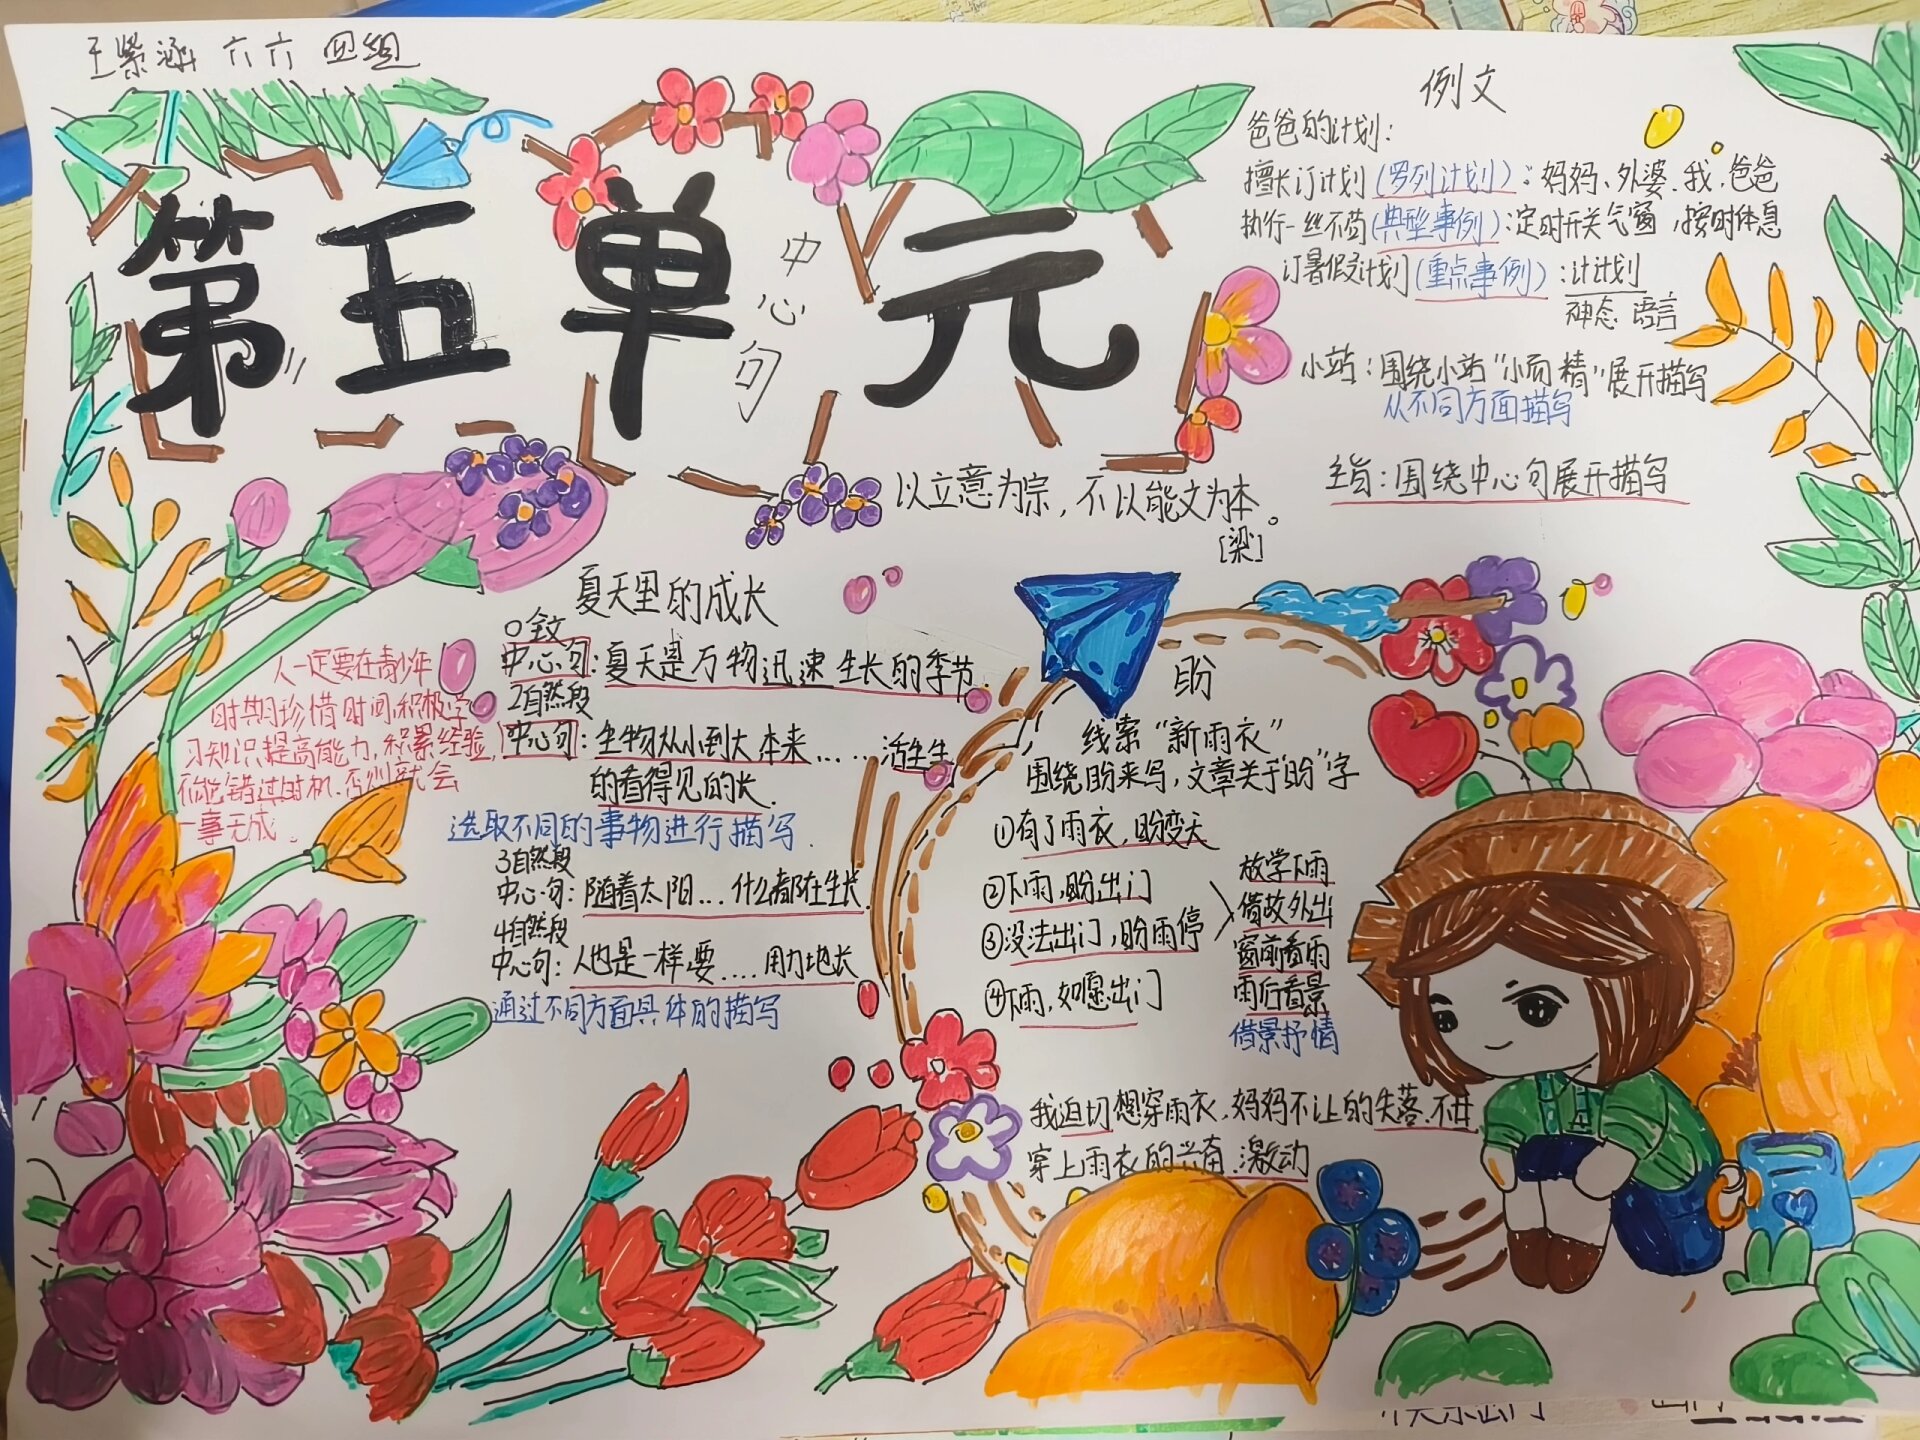 王紫涵 六六 四组
第五单元
中心句
以立意为宗，不以能文为本。
[梁]
例文
爸爸的计划：
擅长订计划(罗列计划)：妈妈、外婆、我、爸爸
执行一丝不苟(典型事例)：定时开关气窗，按时休息
订暑假计划(重点事例)：计计划
神态 语言
小站：围绕小站“小而精”展开描写
从不同方面描写
主旨：围绕中心句展开描写
夏天里的成长
全文
中心句：夏天是万物迅速生长的季节.
2自然段
中心句：生物从小到大本来……活生生
的看得见的长.
选取不同的事物进行描写.
3自然段
中心句：随着太阳...什么都在生长.
4自然段
中心句：人也是一样要....用力地长
通过不同方面具体的描写
人一定要在青少年
时期珍惜时间,积极学
习知识提高能力,积累经验,
不能错过时机.否则就会
一事无成.
盼
线索“新雨衣”
围绕盼来写，文章关于“盼”字
①有了雨衣，盼变天
②下雨，盼出门
③没法出门，盼雨停
④下雨，如愿出门
放学下雨
借故外出
窗前看雨
雨后看景
借景抒情
我迫切想穿雨衣，妈妈不让的失落.不甘
穿上雨衣的兴奋.激动